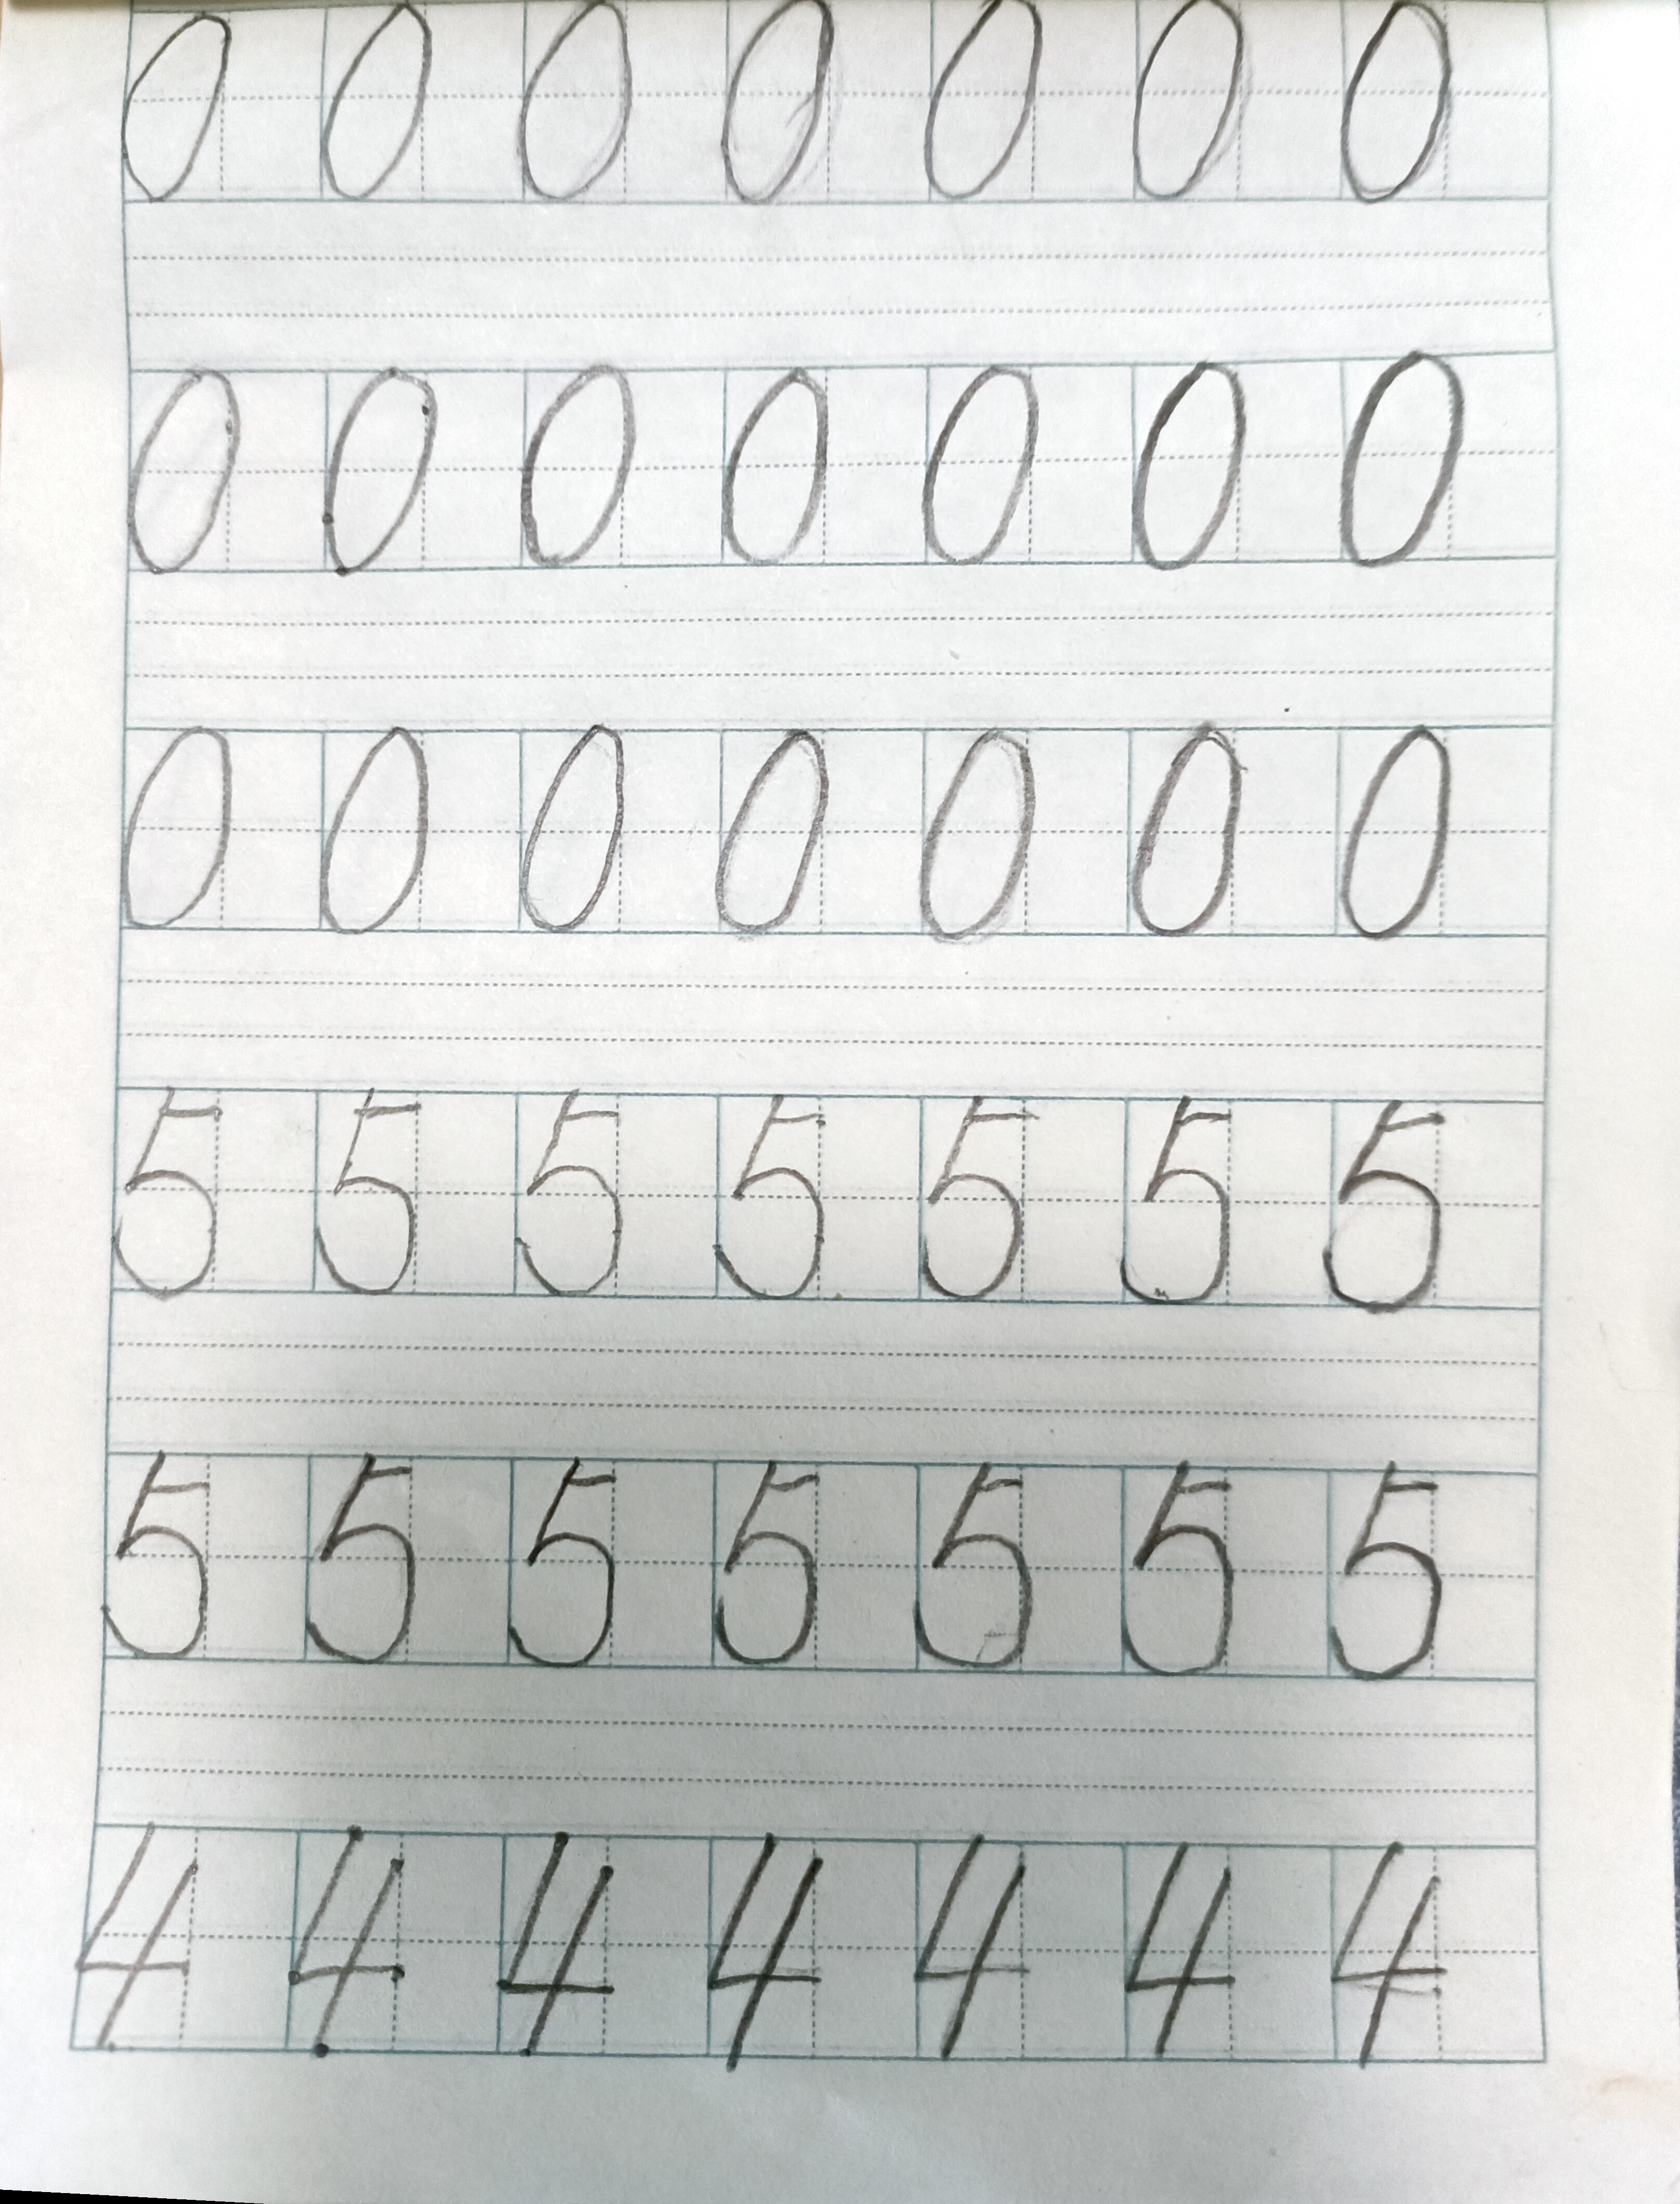 0 0 0 0 0 0 0
0 0 0 0 0 0 0
0 0 0 0 0 0 0
5 5 5 5 5 5 5
5 5 5 5 5 5 5
4 4 4 4 4 4 4